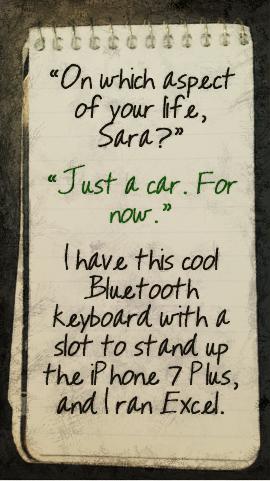 “On which aspect
of your life,
Sara?”
“Just a car. For
now.”
I have this cool
Bluetooth
keyboard with a
slot to stand up
the iPhone 7 Plus,
and I ran Excel.